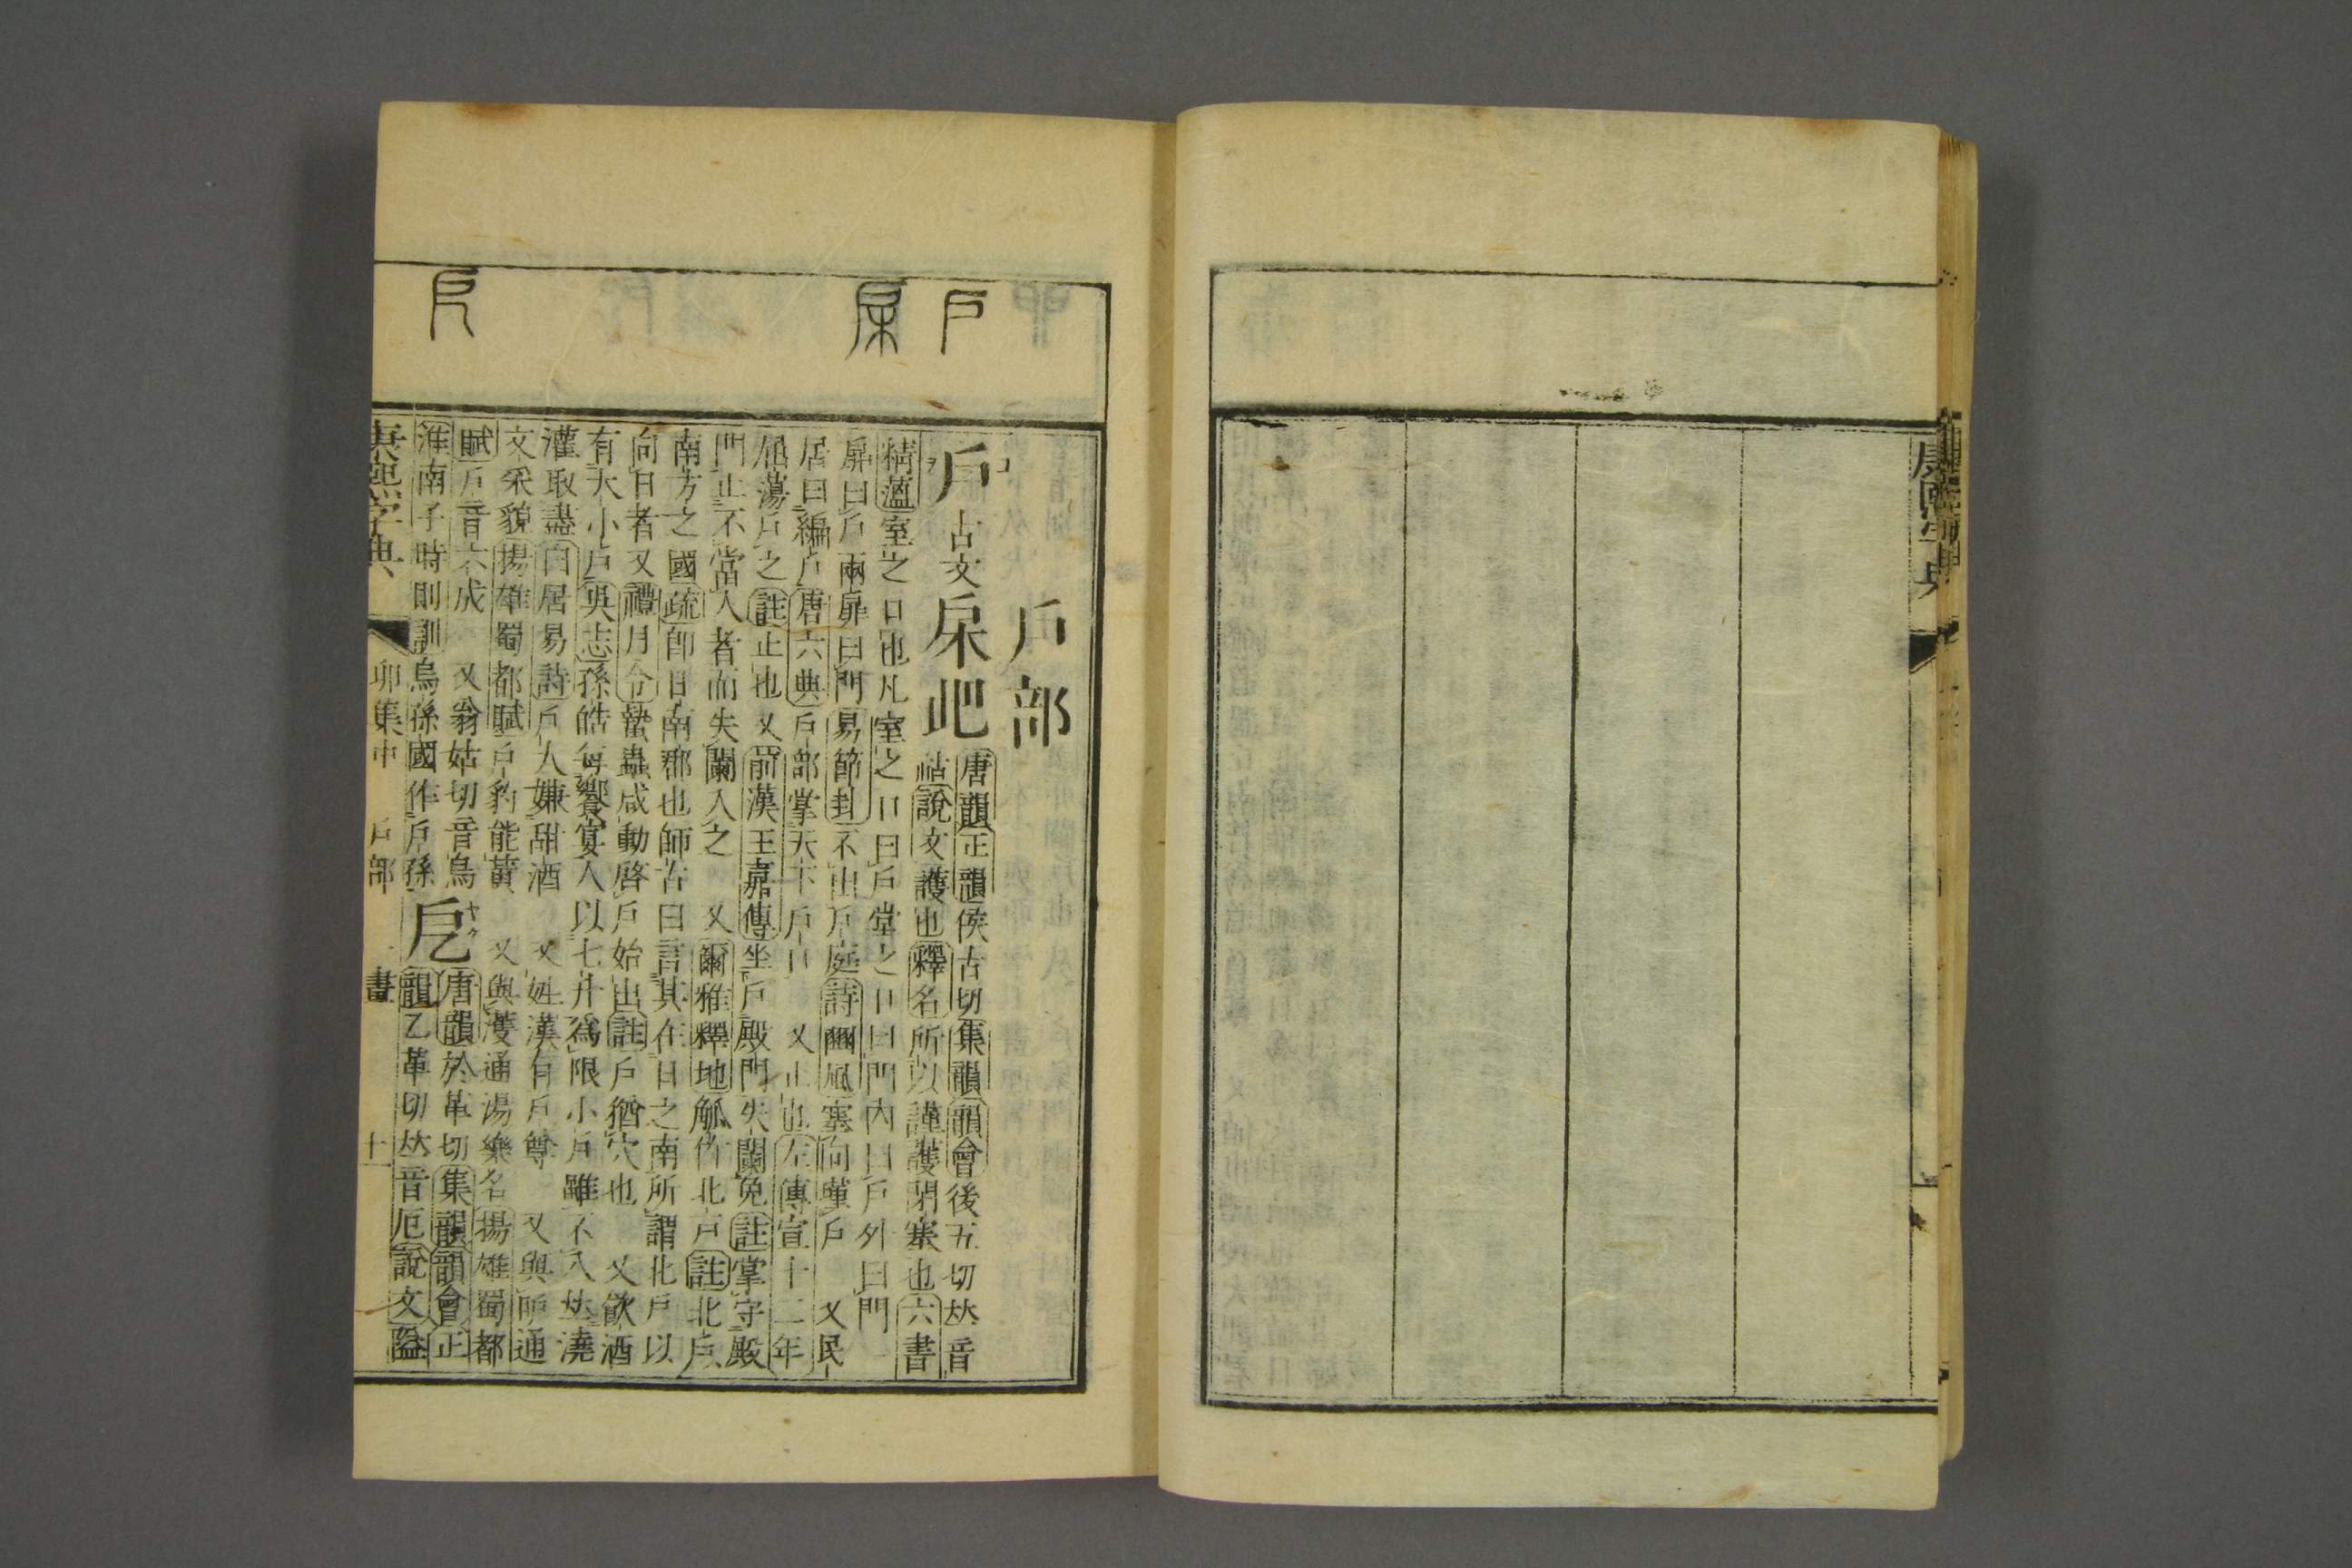 康熙字典
戶部
戶 古文 㦿 𡵆 唐韻正韻侯古切集韻韻會後五切𠀤音
祜說文護也釋名所以謹護閉塞也六書
精薀室之口也凡室之口曰戶堂之口曰門內曰戶外曰門一
扉曰戶兩扉曰門易節卦不出戶庭詩豳風塞向墐戶 又民
居曰編戶唐六典戶部掌天下戶口 又止也左傳宣十二年
屈蕩戶之註止也 又前漢王嘉傳坐戶殿門失闌免註掌守殿
門止不當入者而失闌入之 又爾雅釋地觚竹北戶註北戶
南方之國疏卽日南郡也師古曰言其在日之南所謂北戶以
向日者又禮月令蟄蟲咸動啓戶始出註戶猶穴也 又飮酒
有大小戶吳志孫皓每饗宴人以七升爲限小戶雖不入𠀤澆
灌取盡白居易詩戶大嫌甜酒 又姓漢有戶尊 又與所通
文采貌揚雄蜀都賦戶豹能黃 又與濩通湯樂名揚雄蜀都
賦戶音六成 又翁姑切音烏
淮南子時則訓烏孫國作戶孫
戹 ヤク 唐韻於革切集韻韻會正
韻乙革切𠀤音厄說文隘
康熙字典 卯集中 戶部 一畫 十一